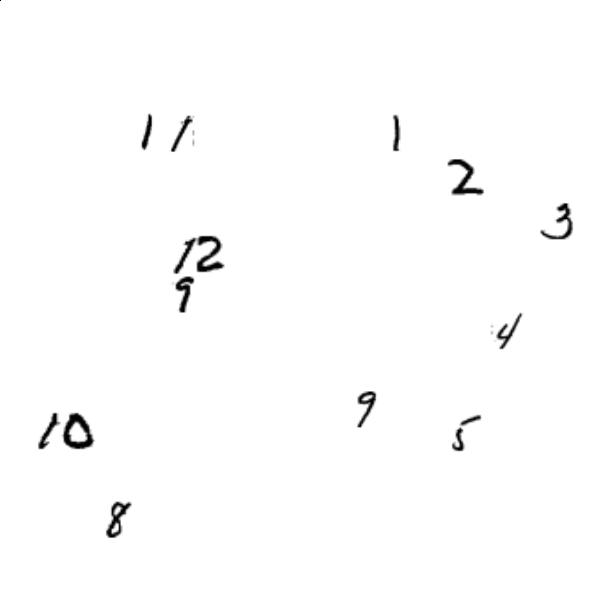 11 1
2
3
12
9
4
9
10 5
8